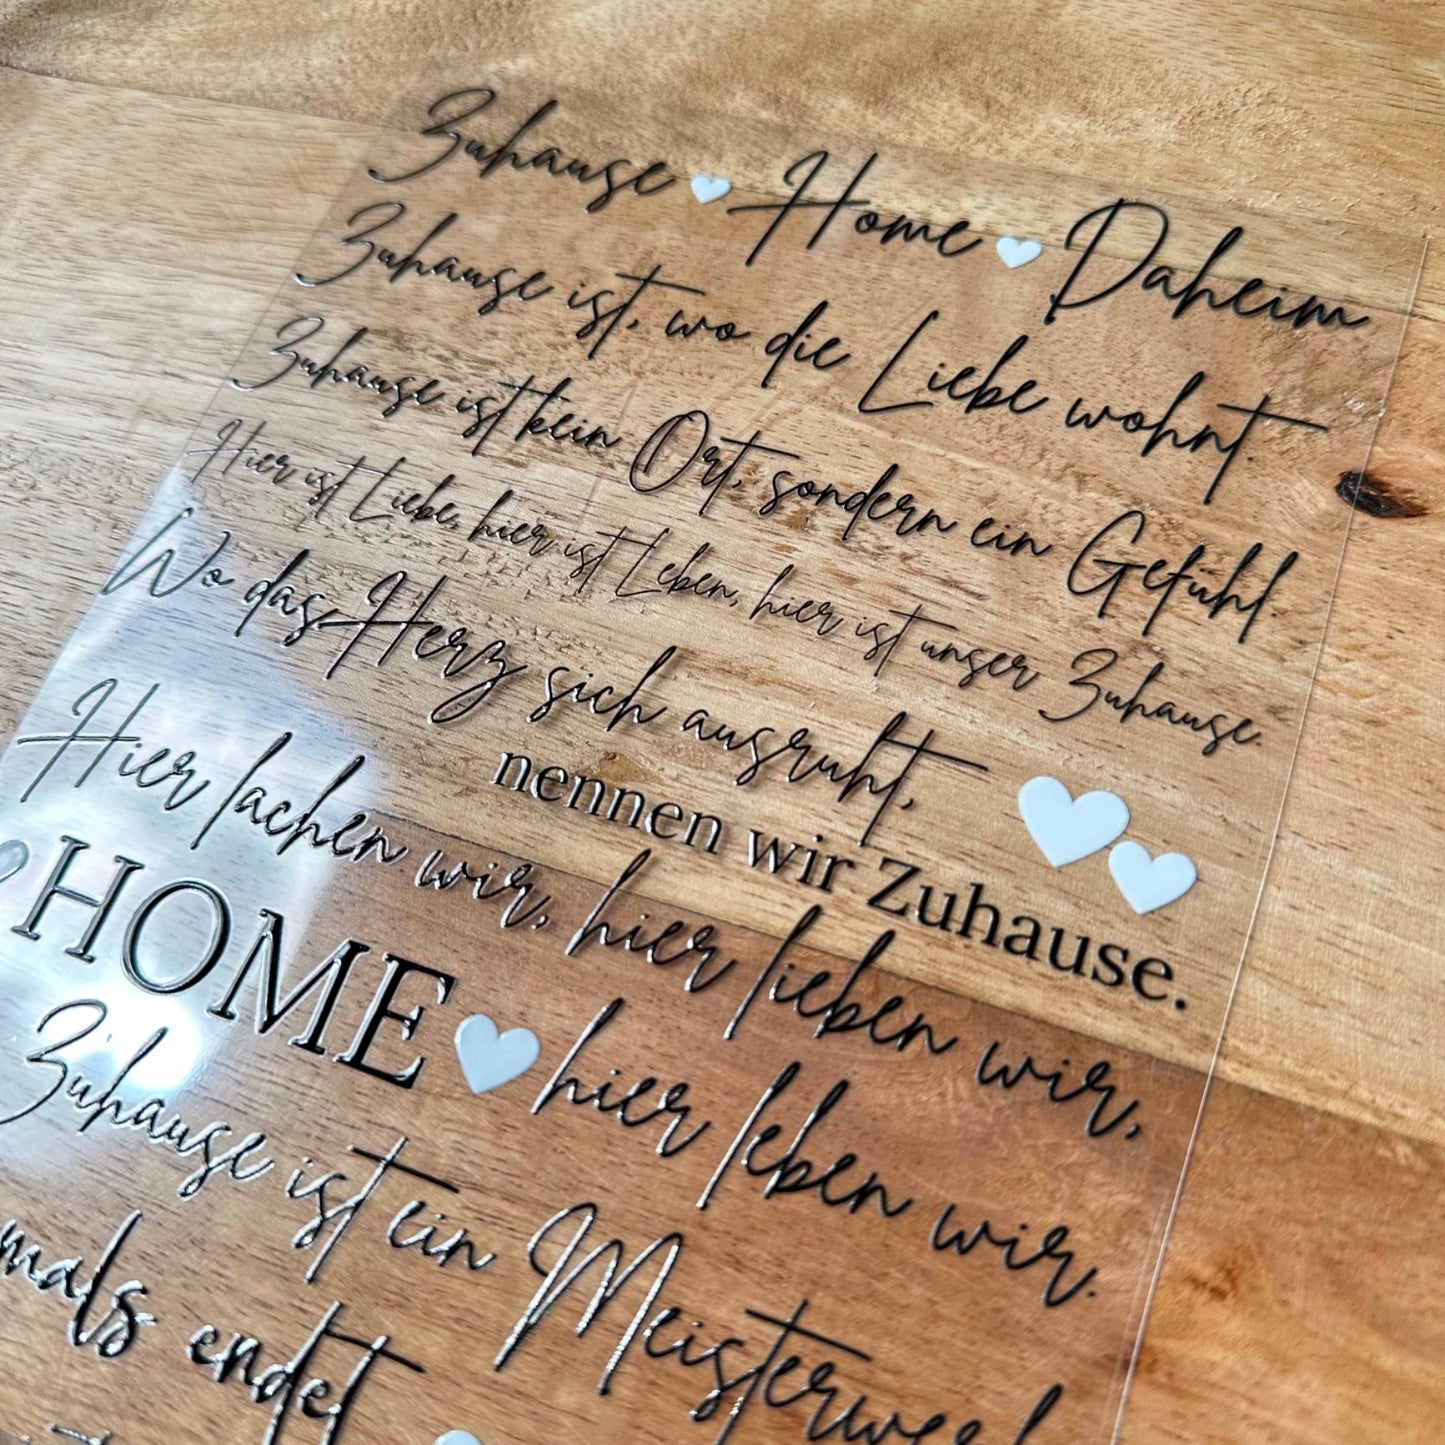 Zuhause Home Daheim
Zuhause ist, wo die Liebe wohnt.
Zuhause ist kein Ort, sondern ein Gefühl.
Hier ist Liebe, hier ist Leben, hier ist unser Zuhause.
Wo das Herz sich ausruht,
nennen wir Zuhause.
Hier lachen wir, hier lieben wir,
HOME hier leben wir.
Zuhause ist ein
mals endet